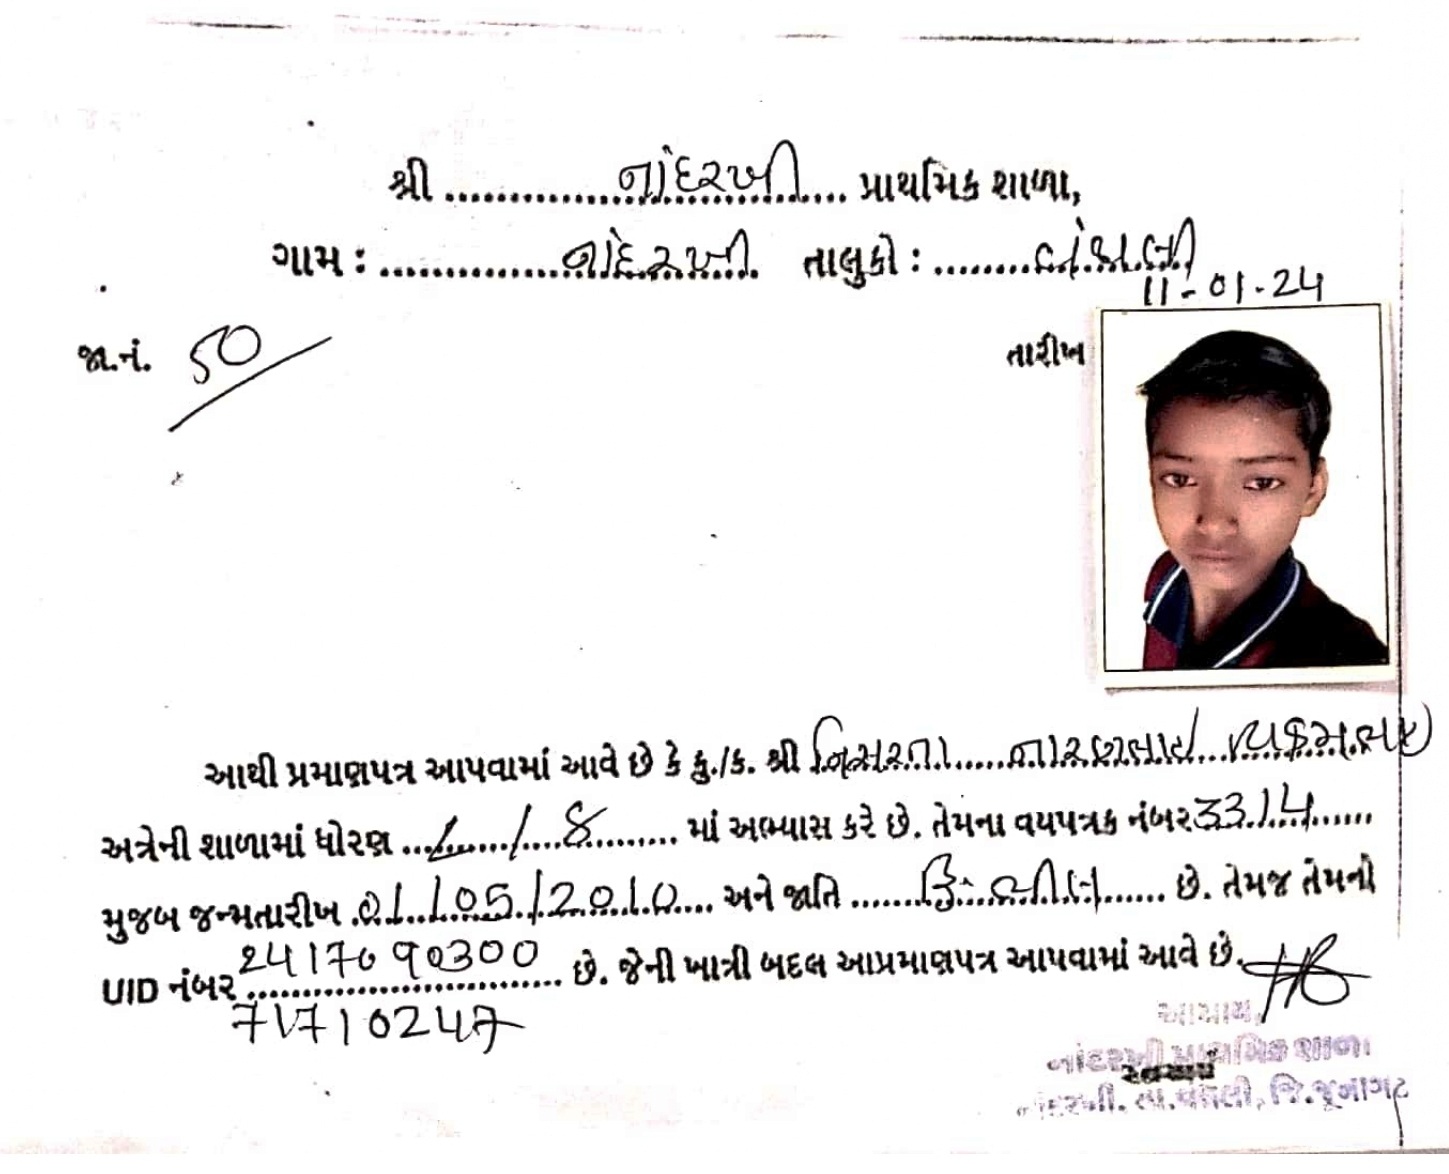 શ્રી નાંદરખી પ્રાથમિક શાળા,
ગામ : નાંદરખી તાલુકો : વંથલી
11-01-24
જા.નં. 50
તારીખ
આથી પ્રમાણપત્ર આપવામાં આવે છે કે કુ./ક. શ્રી
અત્રેની શાળામાં ધોરણ 8 માં અભ્યાસ કરે છે. તેમના વયપત્રક નંબર 3314
મુજબ જન્મતારીખ 01/05/2010 અને જાતિ છે. તેમજ તેમનો
UID નંબર 2417090300 છે. જેની ખાત્રી બદલ આપ્રમાણપત્ર આપવામાં આવે છે.
આચાર્ય,
નાંદરખી પ્રાથમિક શાળા
તા.વંથલી, જિ.જૂનાગઢ